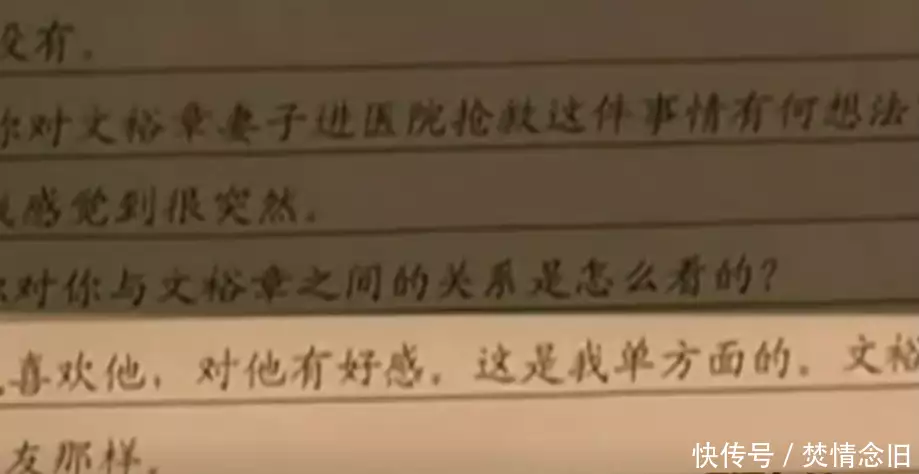 没有。
你对文裕章妻子进医院抢救这件事情有何想法
我感觉到很突然。
你对你与文裕章之间的关系是怎么看的?
喜欢他,对他有好感。这是我单方面的。文裕
友那样。
快传号/焚情念旧